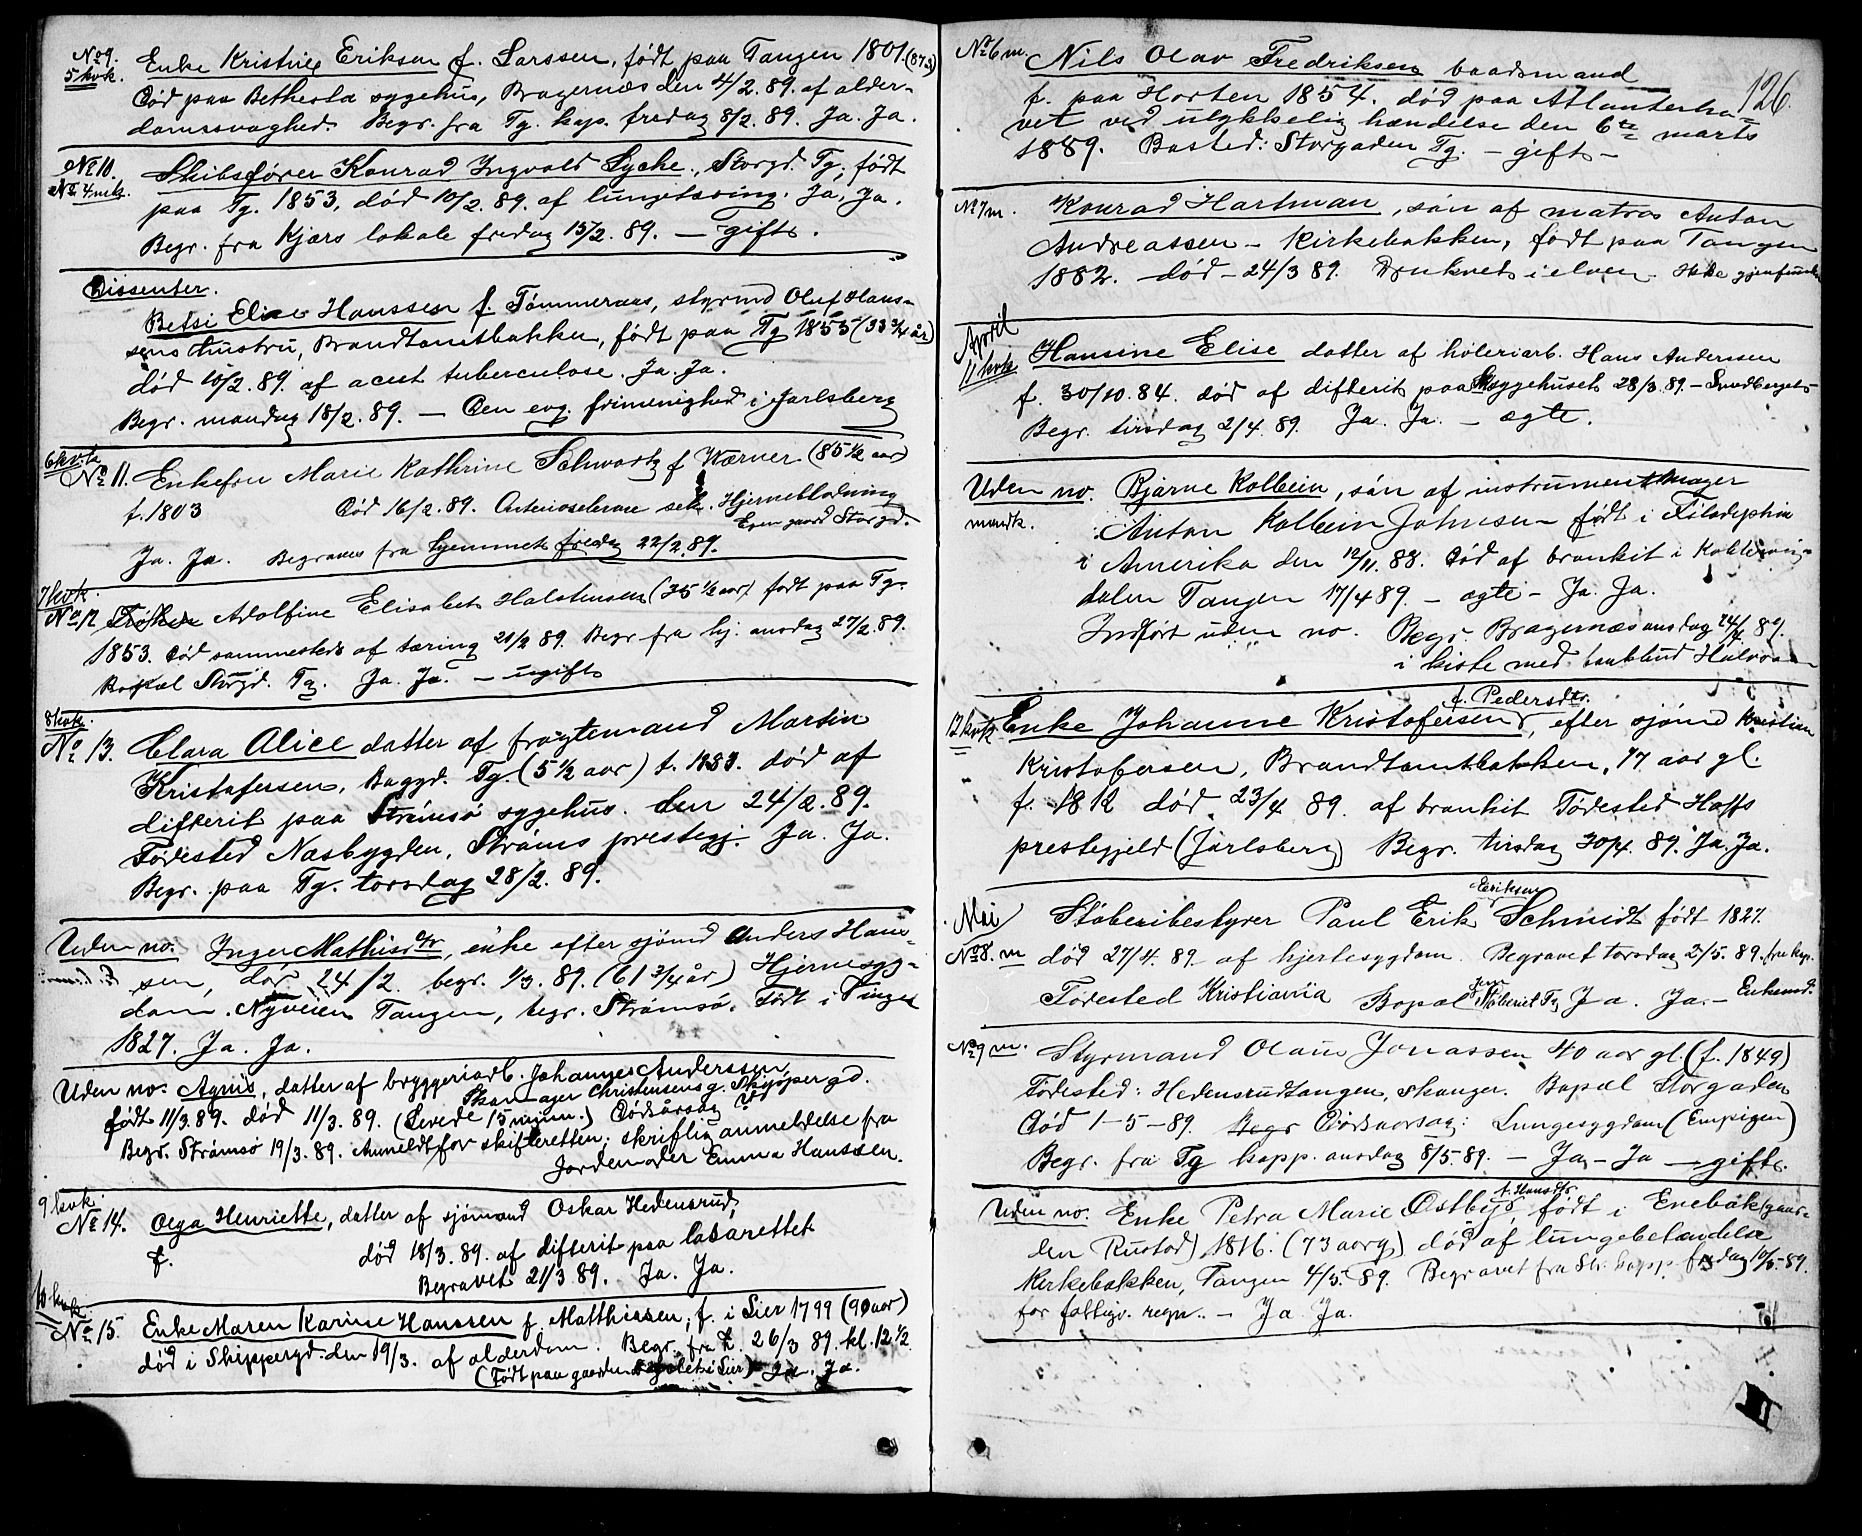 No 9. Enke Kristine Erikson f. Larssen, født paa Tangen 1801.
5 kvk. Død paa Bethesda sygehus, Bragernæs den 4/2. 89. af alder-
domssvaghed. Begr. fra Tg. kap. fredag 8/2. 89. Ja. Ja.
No 10. Skibsfører Konrad Ingvald Lyche, Storgd. Tg; født
No 4 mk. paa Tg. 1853, død 10/2. 89. af lungetæring. Ja, Ja.
Begr. fra Kjærs lokale fredag 15/2. 89. — gift.
Dissenter.
Betsi Elise Hanssen f. Tømmeraas, styrmd Oluf Hans-
sens hustru, Brandtomtbakken, født paa Tg 1855 (33 3/4 år)
død 10/2. 89. af acut tuberculose. Ja. Ja.
Begr. mandag 18/2. 89. — Den evg. frimenighed i Jarlsberg
6 kvk
No 11. Enkefru Marie Kathrine Schwartz f Wærner (85 1/2 aar)
f. 1803 Død 16/2. 89. Hjerneblødning
Egen gaard Storgd.
Ja. Ja. Begraves fra hjemmet fredag 22/2. 89.
7 kvk.
No 12 Frøken Adolfine Elisabet Halstensen (35 1/2 aar) født paa Tg.
1853. Død sammesteds af tæring 21/2 89. Begr fra hj. onsdag 27/2. 89.
Bopæl Storgd. Tg. Ja. Ja. — ugift
8 kvk.
No 13. Clara Alice datter af fragtemand Martin
Kristofersen, Baggd. Tg. (5 1/2 aar) f. 1883. død af
difterit paa Strømsø sygehus. den 24/2. 89.
Fødested Næsbygden, Strøms prestegj. Ja. Ja.
Begr. paa Tg. torsdag 28/2. 89.
Uden no. Inger Mathisdtr, enke efter sjømd Anders Han-
sen, dør 24/2. begr. 1/3. 89. (61 3/4 år) Hjernesyg-
dom. Nyveien Tangen, begr. Strømsø. Født i
1827. Ja. Ja.
Uden no. Agnis, datter af bryggeriarb. Johannes Anderssen,
Skomager Christensens g. Skippergd.
født 11/3. 89. død 11/3. 89. (Levede 15 minu.) Dødsårsag ?
Begr. Strømsø 19/3. 89. Anmeldt for skifteretten; skriftlig anmeldelse fra
Jordemoder Emma Hanssen.
9 kvk.
No 14. Olga Henriette, datter af sjømand Oskar Hedensrud,
f. død 18/3. 89. af difterit paa lasarettet
Begravet 21/3 89. Ja. Ja.
10 kvk.
No 15. Enke Maren Karine Hanssen f. Matthissen; f. i Lier 1799 (90 aar)
død i Skippergd. den 19/3. af alderdom. Begr. fra 26/3 89. kl. 12 1/2
(Født paa gaarden i Lier) Ja. Ja.
126.
No 6 m. Nils Olav Fredriksen baadsmand
f. paa Horten 1854. død paa Atlanterha-
vet ved ulykkelig hændelse den 6te marts
1889. Bosted: Storgaden Tg. — gift —
No 7 m. Konrad Hartman, søn af matros Anton
Andreassen — Kirkebakken, født paa Tangen
1882. død — 24/3 89. Druknet i elven — Ikke gjenfunden
April
11 kvk Hansine Elise datter af høleriarb. Hans Anderssen
f. 30/10. 84. død af difterit paa sygehuset 28/3. 89. —
Begr. tirsdag 2/4. 89. Ja. Ja. — ægte.
Uden no. Bjarne Kolbein, søn af instrumentmager
mandk. Anton Kolbein Johnsen — født i Filadephia
i Amerika den 12/11. 88. Død af bronkit i
dalen Tangen 17/4 89. — ægte — Ja. Ja.
Indført uden no. Begr. Bragernæs onsdag 24/4 89.
i kiste med
f. Pedersdtr.
12 kvk Enke Johanne Kristofersen, efter sjømd Kristian
Kristofersen, Brandtomtbakken, 77 aar gl.
f. 1812 død 23/4 89. af bronkit Fødested Hoffs
prestegjeld (Jarlsberg) Begr. tirsdag 30/4. 89. Ja. Ja.
Mai Støberibestyrer Paul Erik Schmidt født 1827.
Eerikson
No 8. m død 27/4. 89 af hjertesygdom. Begravet torsdag 2/5. 89. fra kap.
Fødested Kristiania Bopæl Støberiet Tg Ja. Ja. — Enkemd.
No 9 m. Styrmand Olaus Jonassen 40 aar gl. (f. 1849)
Fødested: Hedensrudtangen, Skauger. Bopæl Storgaden
Død 1—5—89. Begr Dødsaarsag: Lungesygdom (Empigen)
Begr. fra Tg kapp. onsdag 8/5. 89. — Ja — Ja — gift.
f. Hansdtr.
Uden no. Enke Petra Marie Østbys, født i Enebak (gaar-
den Rustad) 1816. (73 aar g) død af lungebetændelse
Kirkebakken, Tangen 4/5. 89. Begravet fra Str. kapp. fredag 10/5—89.
for fattigv. regn. — Ja Ja.